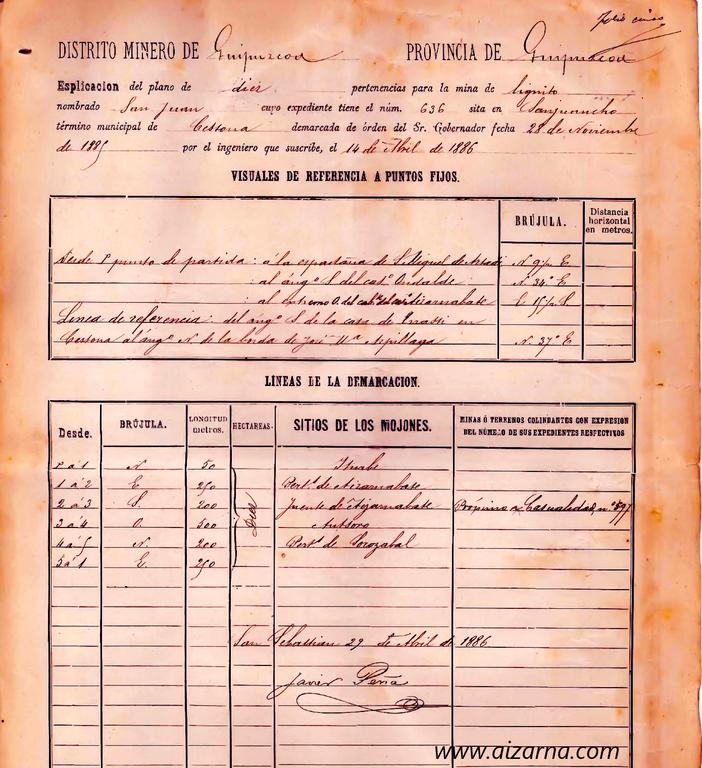 Folio cinco
DISTRITO MINERO DE Guipuzcoa PROVINCIA DE Guipuzcoa
Esplicacion del plano de diez pertenencias para la mina de lignito
nombrado San Juan cuyo expediente tiene el núm. 636 sita en Sanjuancho
término municipal de Cestona demarcada de órden del Sr. Gobernador fecha 28 de Noviembre
de 1885 por el ingeniero que suscribe, el 14 de Abril de 1886
VISUALES DE REFERENCIA A PUNTOS FIJOS.
BRÚJULA. Distancia horizontal en metros.
Desde P punto de partida: á la espadaña de S. Miguel de N. 9º E
: al ángº S. del casº N. 34º E
: al O. del Aizarnabate
Linea de referencia: del ángº S. de la casa de en
Cestona al ángº N. de la borda de José Mª N. 37º E
LINEAS DE LA DEMARCACION.
Desde. BRÚJULA. LONGITUD metros. HECTAREAS. SITIOS DE LOS MOJONES. MINAS Ó TERRENOS COLINDANTES CON EXPRESION DEL NÚMERO DE SUS EXPEDIENTES RESPECTIVOS
P á 1 N. 50 Iturbe
1 á 2 E. 250 Pertª de Aizarnabate
2 á 3 S. 200 Diez Fuente de Aizarnabate Próxima a Casualidad, nº 897
3 á 4 O. 500 Antsoro
4 á 5 N. 200 Pertª de Porozabal
5 á 1 E. 250
San Sebastian 29 de Abril de 1886
Javier Peña
www.aizarna.com